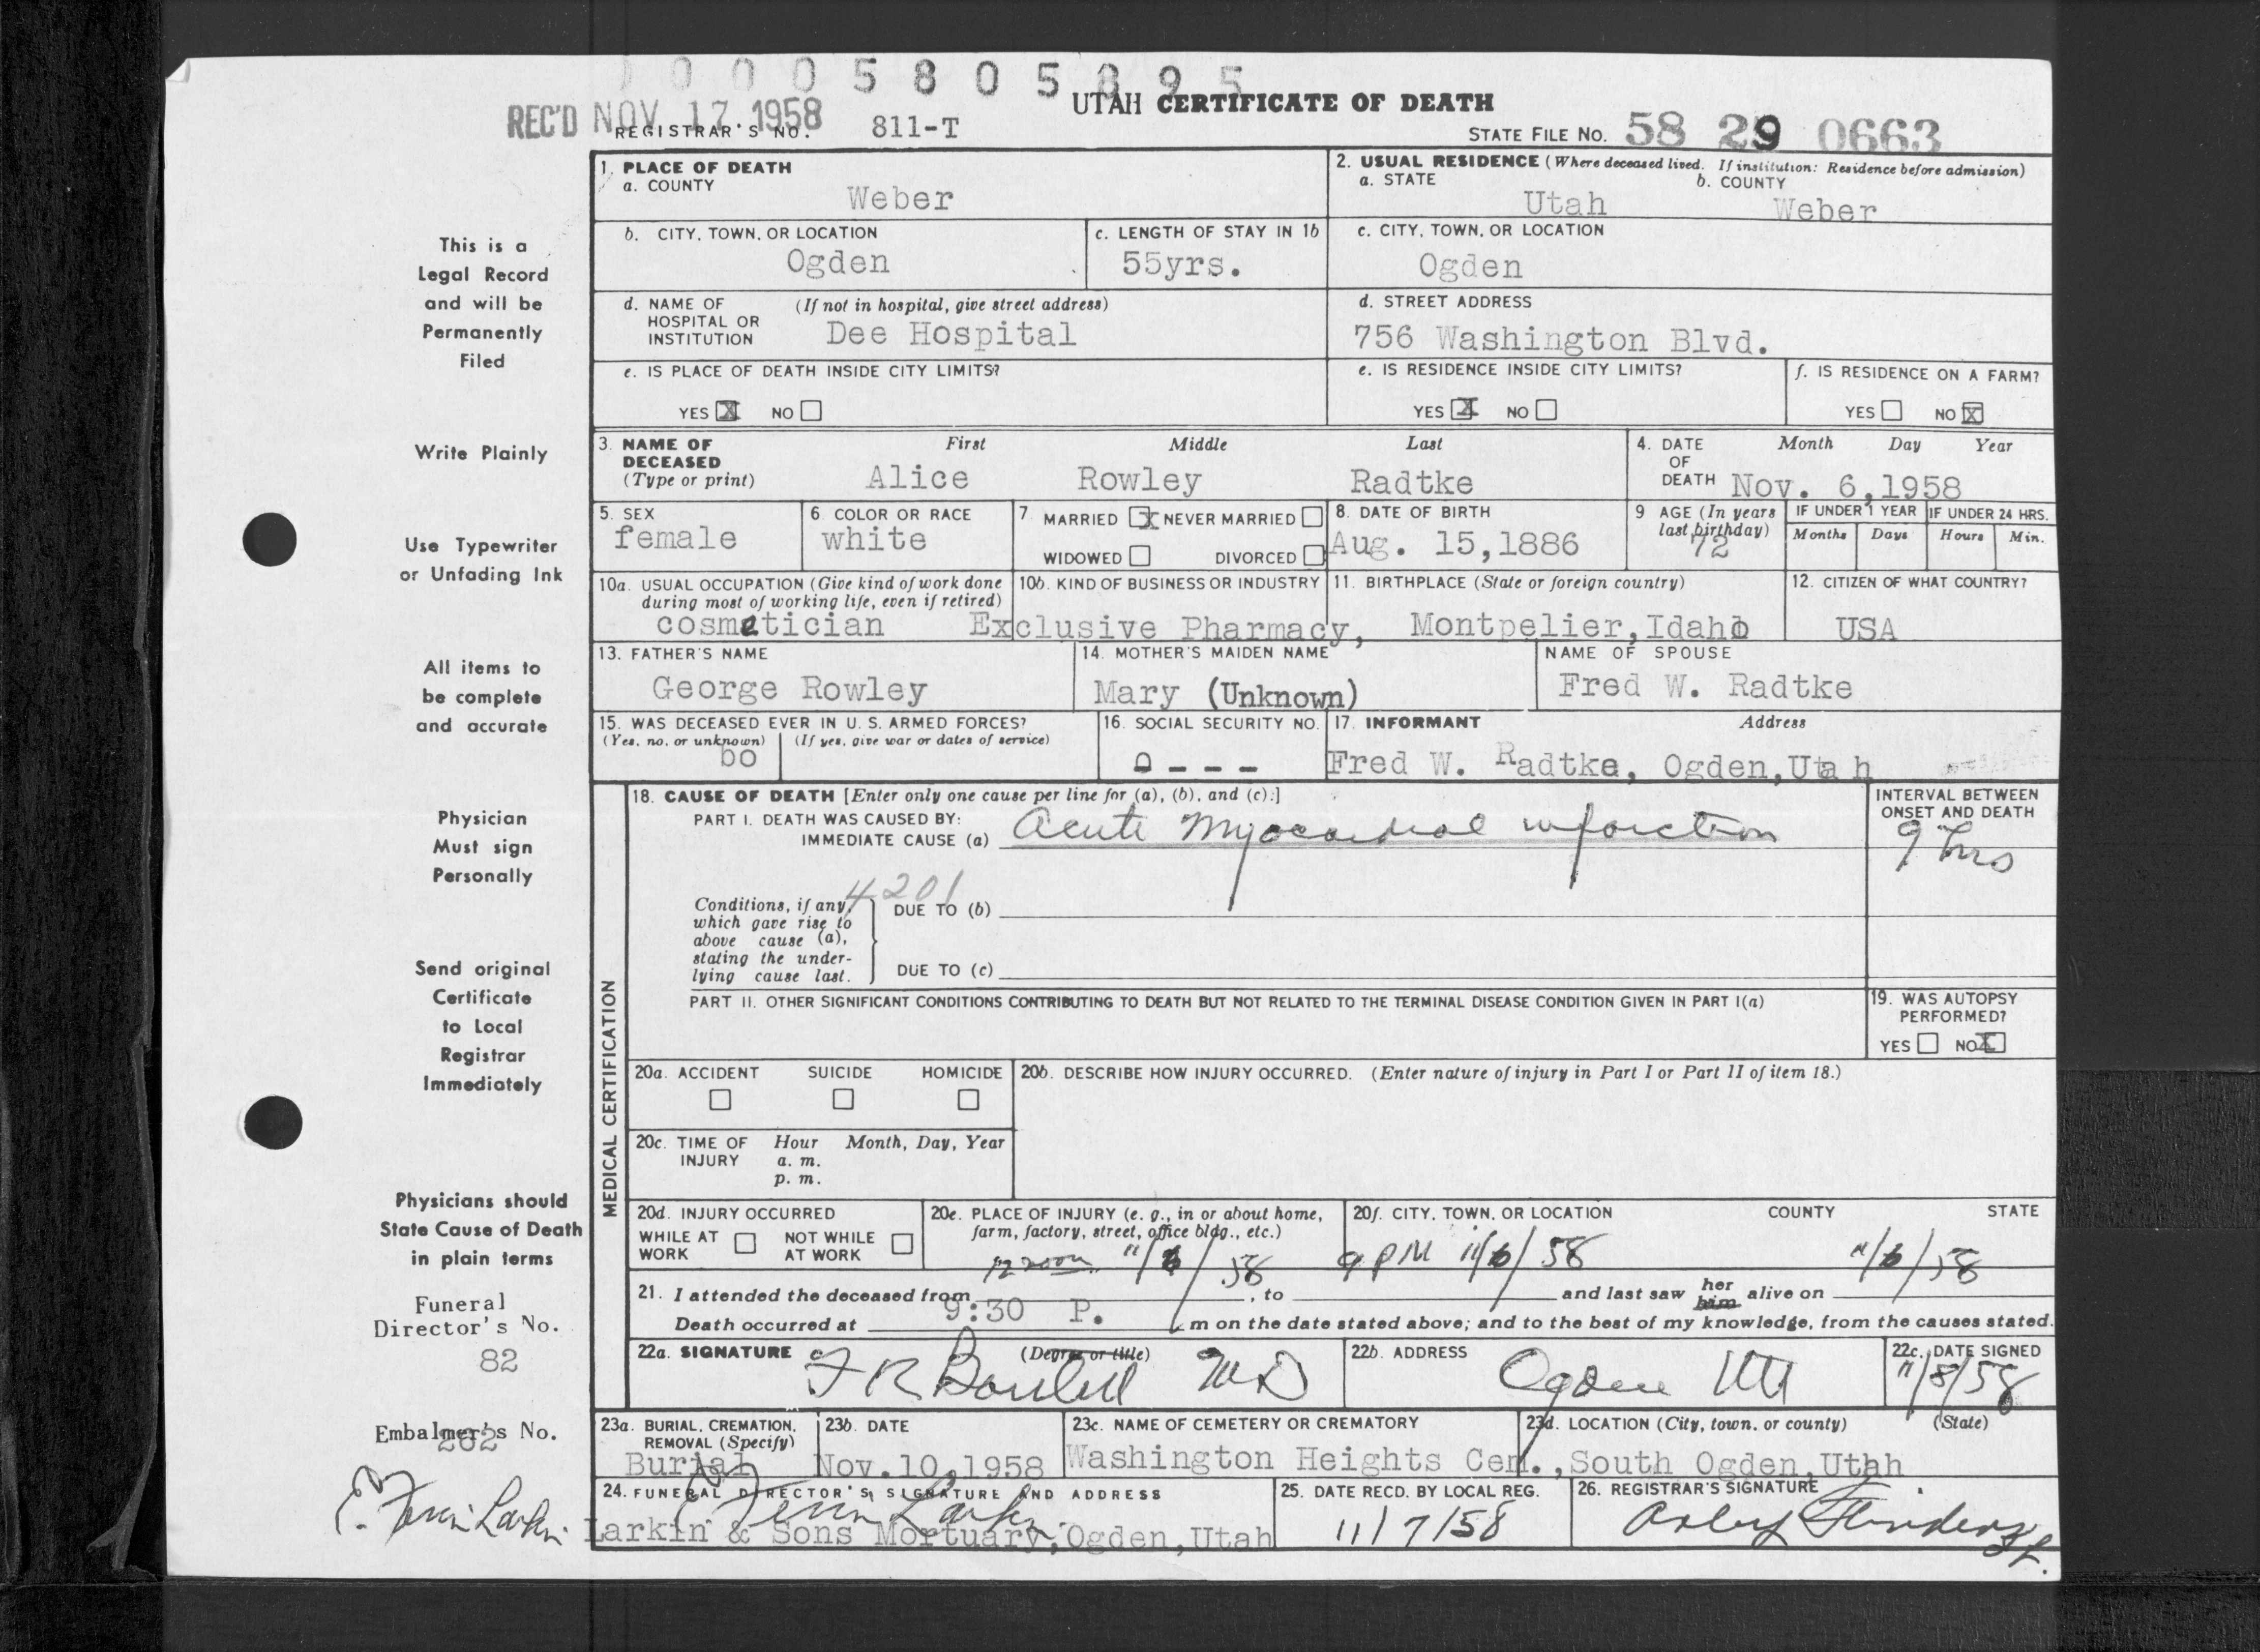 0 0 0 5 8 0 5 8 9 5
REC'D NOV 17 1958
UTAH CERTIFICATE OF DEATH
REGISTRAR'S NO. 811-T
STATE FILE NO. 58 29 0663
This is a
Legal Record
and will be
Permanently
Filed
Write Plainly
Use Typewriter
or Unfading Ink
All items to
be complete
and accurate
Physician
Must sign
Personally
Send original
Certificate
to Local
Registrar
Immediately
Physicians should
State Cause of Death
in plain terms
Funeral
Director's No.
82
Embalmer's No.
262
1. PLACE OF DEATH
a. COUNTY
Weber
2. USUAL RESIDENCE (Where deceased lived. If institution: Residence before admission)
a. STATE b. COUNTY
Utah Weber
b. CITY, TOWN, OR LOCATION
Ogden
c. LENGTH OF STAY IN 1b
55yrs.
c. CITY, TOWN, OR LOCATION
Ogden
d. NAME OF (If not in hospital, give street address)
HOSPITAL OR
INSTITUTION Dee Hospital
d. STREET ADDRESS
756 Washington Blvd.
e. IS PLACE OF DEATH INSIDE CITY LIMITS?
YES X NO
e. IS RESIDENCE INSIDE CITY LIMITS?
YES X NO
f. IS RESIDENCE ON A FARM?
YES NO X
3. NAME OF First Middle Last
DECEASED
(Type or print) Alice Rowley Radtke
4. DATE Month Day Year
OF
DEATH Nov. 6,1958
5. SEX
female
6 COLOR OR RACE
white
7 MARRIED X NEVER MARRIED
WIDOWED DIVORCED
8. DATE OF BIRTH
Aug. 15,1886
9 AGE (In years
last birthday)
72
IF UNDER 1 YEAR IF UNDER 24 HRS.
Months Days Hours Min.
10a. USUAL OCCUPATION (Give kind of work done
during most of working life, even if retired)
cosmetician
10b. KIND OF BUSINESS OR INDUSTRY
Exclusive Pharmacy,
11. BIRTHPLACE (State or foreign country)
Montpelier,Idaho
12. CITIZEN OF WHAT COUNTRY?
USA
13. FATHER'S NAME
George Rowley
14. MOTHER'S MAIDEN NAME
Mary (Unknown)
NAME OF SPOUSE
Fred W. Radtke
15. WAS DECEASED EVER IN U. S. ARMED FORCES?
(Yes, no, or unknown) (If yes, give war or dates of service)
bo
16. SOCIAL SECURITY NO.
0 - - -
17. INFORMANT Address
Fred W. Radtke, Ogden,Uta h
MEDICAL CERTIFICATION
18. CAUSE OF DEATH [Enter only one cause per line for (a), (b), and (c).]
PART I. DEATH WAS CAUSED BY:
IMMEDIATE CAUSE (a) Acute Myocardial infarction
INTERVAL BETWEEN
ONSET AND DEATH
9 hrs
4201
Conditions, if any,
which gave rise to
above cause (a),
stating the under-
lying cause last.
DUE TO (b)
DUE TO (c)
PART II. OTHER SIGNIFICANT CONDITIONS CONTRIBUTING TO DEATH BUT NOT RELATED TO THE TERMINAL DISEASE CONDITION GIVEN IN PART I(a)
19. WAS AUTOPSY
PERFORMED?
YES NO X
20a. ACCIDENT SUICIDE HOMICIDE
20b. DESCRIBE HOW INJURY OCCURRED. (Enter nature of injury in Part I or Part II of item 18.)
20c. TIME OF Hour Month, Day, Year
INJURY a. m.
p. m.
20d. INJURY OCCURRED
WHILE AT NOT WHILE
WORK AT WORK
20e. PLACE OF INJURY (e. g., in or about home,
farm, factory, street, office bldg., etc.)
20f. CITY, TOWN, OR LOCATION COUNTY STATE
12 noon 11/6/58 9 PM 11/6/58 11/6/58
21. I attended the deceased from , to and last saw her him alive on
Death occurred at 9:30 P. m on the date stated above; and to the best of my knowledge, from the causes stated.
22a. SIGNATURE (Degree or title)
F R MD
22b. ADDRESS
Ogden Ut
22c. DATE SIGNED
11/8/58
23a. BURIAL, CREMATION,
REMOVAL (Specify)
Burial
23b. DATE
Nov.10,1958
23c. NAME OF CEMETERY OR CREMATORY
Washington Heights Cem.,
23d. LOCATION (City, town, or county) (State)
South Ogden,Utah
24. FUNERAL DIRECTOR'S SIGNATURE AND ADDRESS
Larkin & Sons Mortuary,Ogden,Utah
25. DATE RECD. BY LOCAL REG.
11/7/58
26. REGISTRAR'S SIGNATURE
Flinders